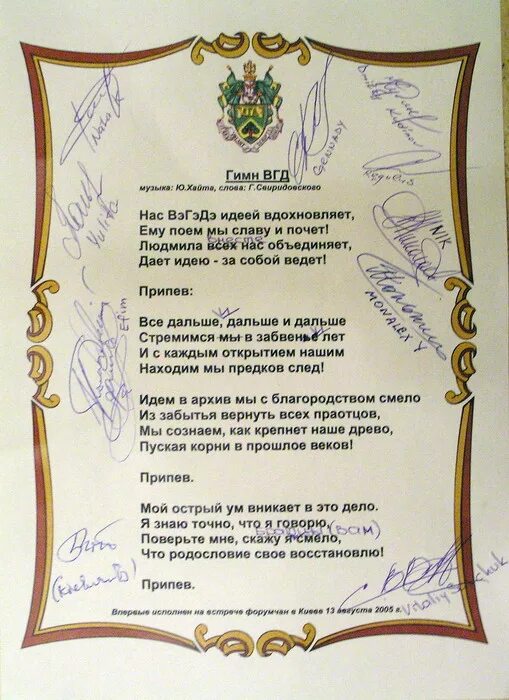 Гимн ВГД
музыка: Ю.Хайта, слова: Г.Свиридовского
Нас ВэГэДэ идеей вдохновляет,
Ему поем мы славу и почет!
вместе
Людмила всех нас объединяет,
Дает идею - за собой ведет!
Припев:
Все дальше, дальше и дальше
Стремимся мы в забвенье лет
И с каждым открытием нашим
Находим мы предков след!
Идем в архив мы с благородством смело
Из забытья вернуть всех праотцов,
Мы сознаем, как крепнет наше древо,
Пуская корни в прошлое веков!
Припев.
Мой острый ум вникает в это дело.
Я знаю точно, что я говорю,
(вам)
Поверьте мне, скажу я смело,
Что родословие свое восстановлю!
Припев.
Впервые исполнен на встрече форумчан в Киеве 13 августа 2005 г.
Nata
Yuleta
Efim
GENNADY
NIK
MONALEXY
Vitaliy